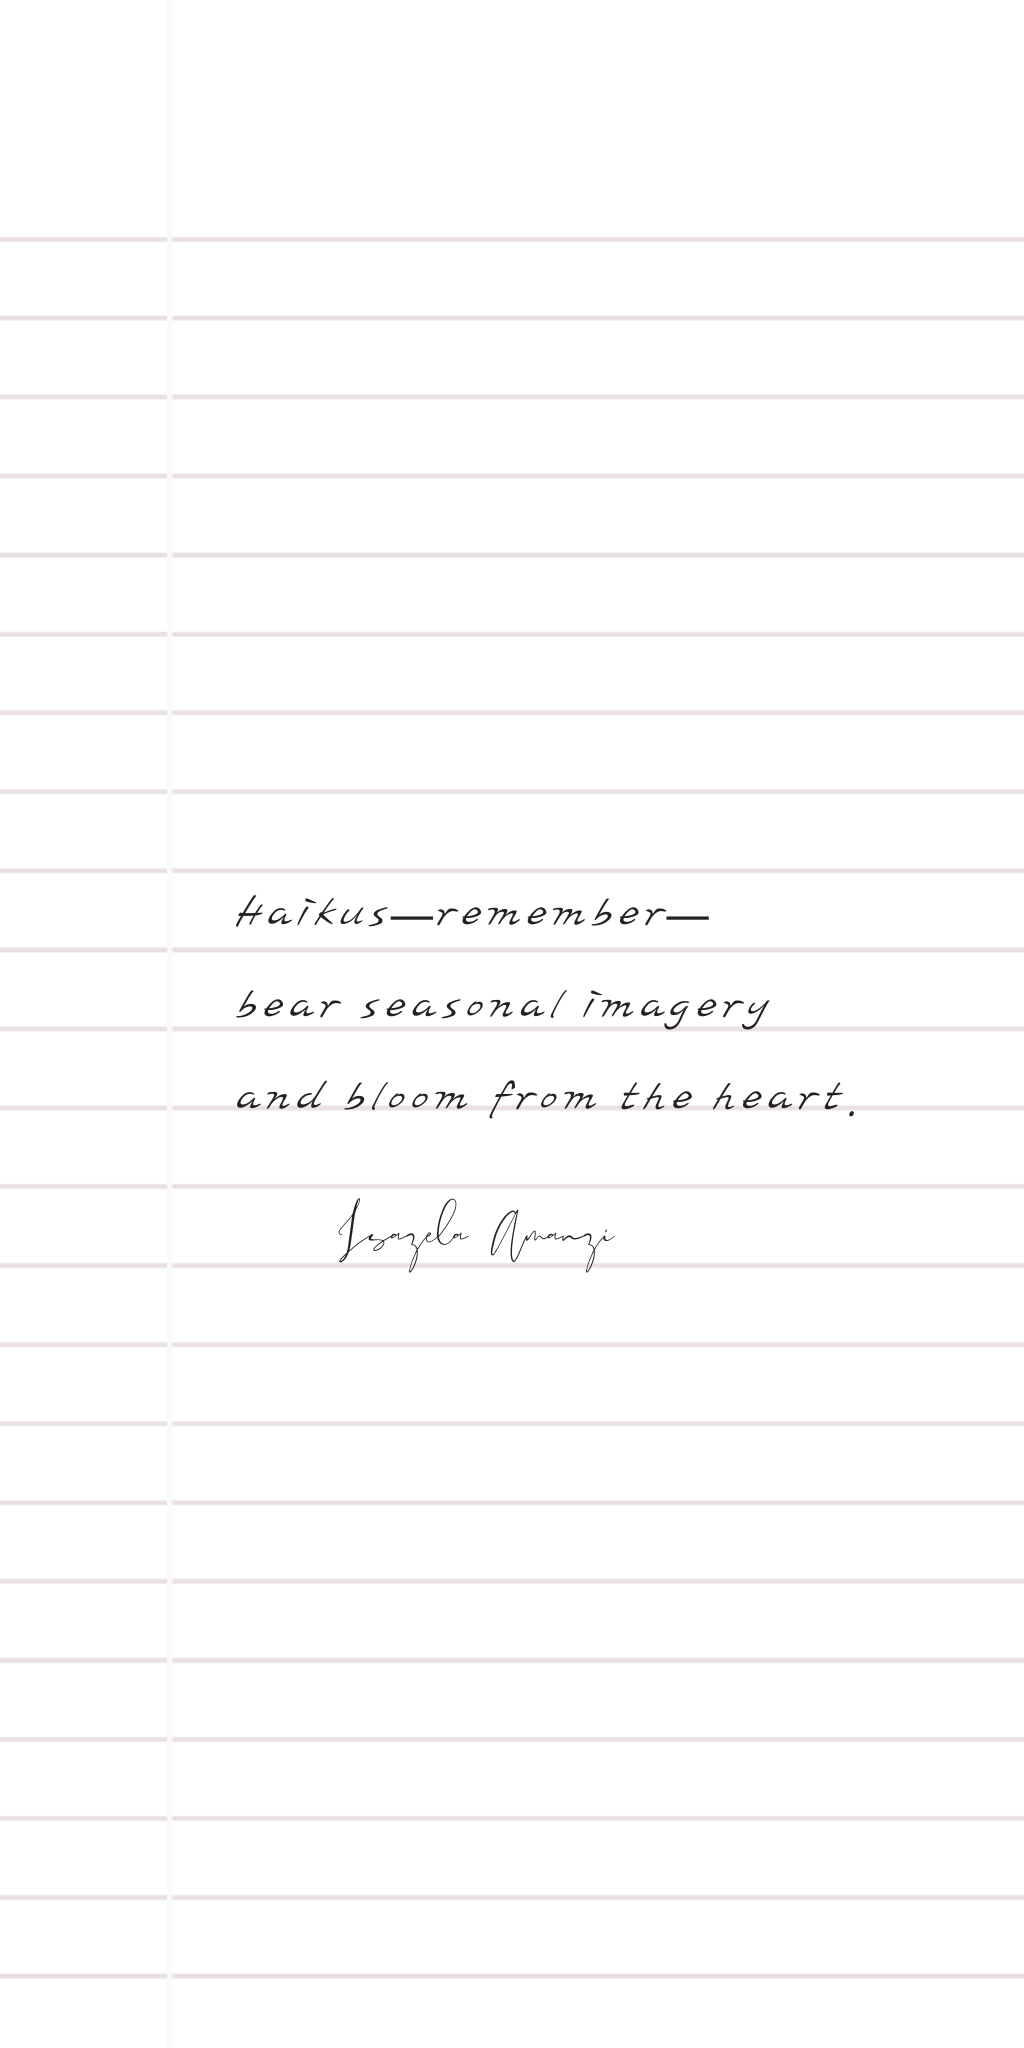 Haikus—remember—
bear seasonal imagery
and bloom from the heart.
Isazela Amanzi